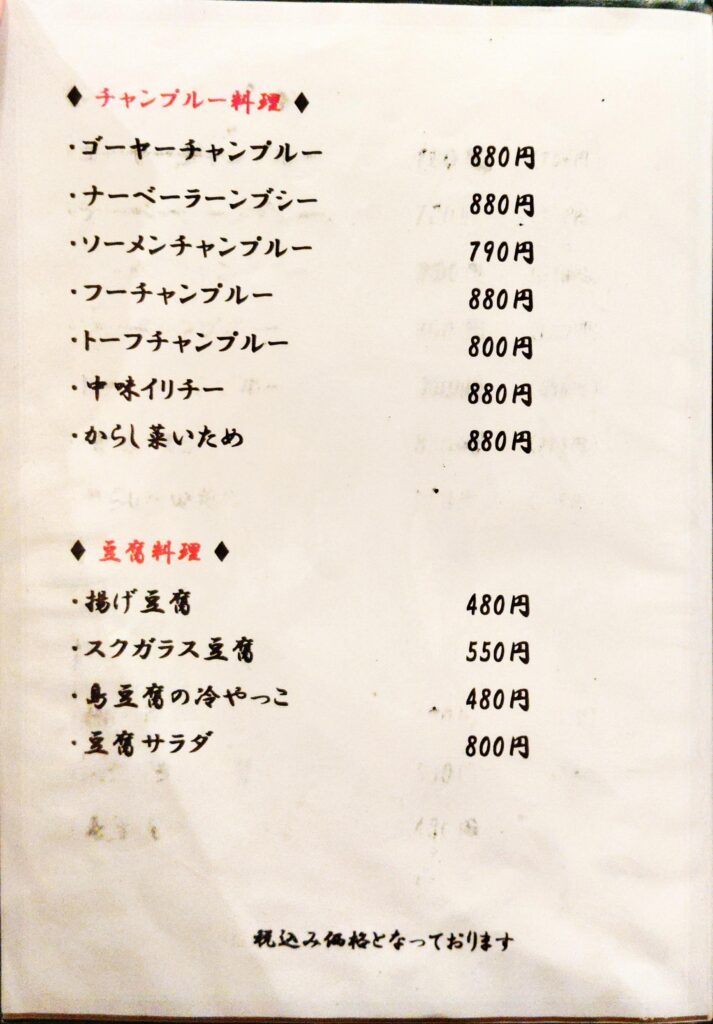 ◆ チャンプルー料理 ◆
・ゴーヤーチャンプルー 880円
・ナーベーラーンブシー 880円
・ソーメンチャンプルー 790円
・フーチャンプルー 880円
・トーフチャンプルー 800円
・中味イリチー 880円
・からし菜いため 880円
◆ 豆腐料理 ◆
・揚げ豆腐 480円
・スクガラス豆腐 550円
・島豆腐の冷やっこ 480円
・豆腐サラダ 800円
税込み価格となっております